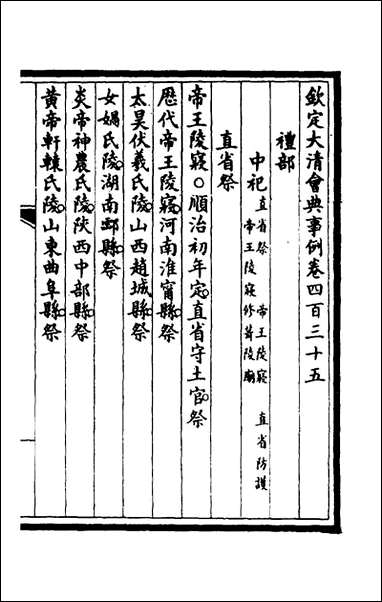 欽定大清會典事例卷四百三十五
禮部
中祀 直省祭 帝王陵寢 直省防護
帝王陵寢 修葺陵廟
直省祭
帝王陵寢○順治初年定。直省守土官。祭
歷代帝王陵寢。河南淮甯縣。祭
太昊伏羲氏陵。山西趙城縣。祭
女媧氏陵。湖南酃縣。祭
炎帝神農氏陵。陝西中部縣。祭
黃帝軒轅氏陵。山東曲阜縣。祭